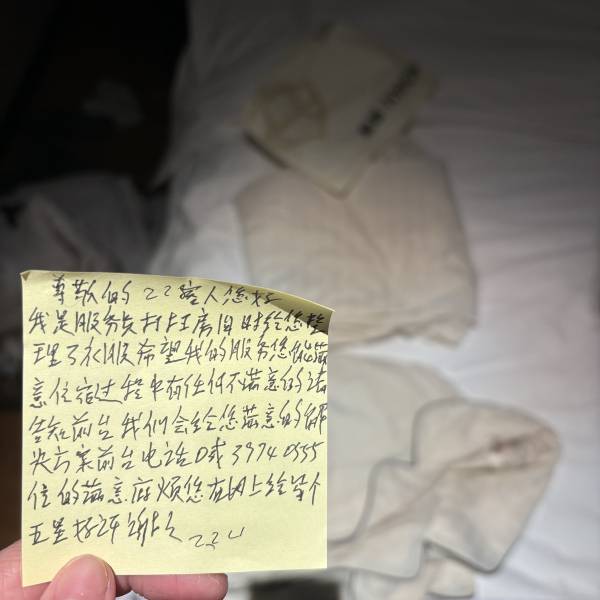 尊敬的 客人您好
我是服务员打扫房间时给您整
理了衣服希望我的服务您能满
意住宿过程中有任何不满意的请
告知前台我们会给您满意的解
决方案前台电话0或39740555
住的满意麻烦您在网上给个
五星好评谢谢